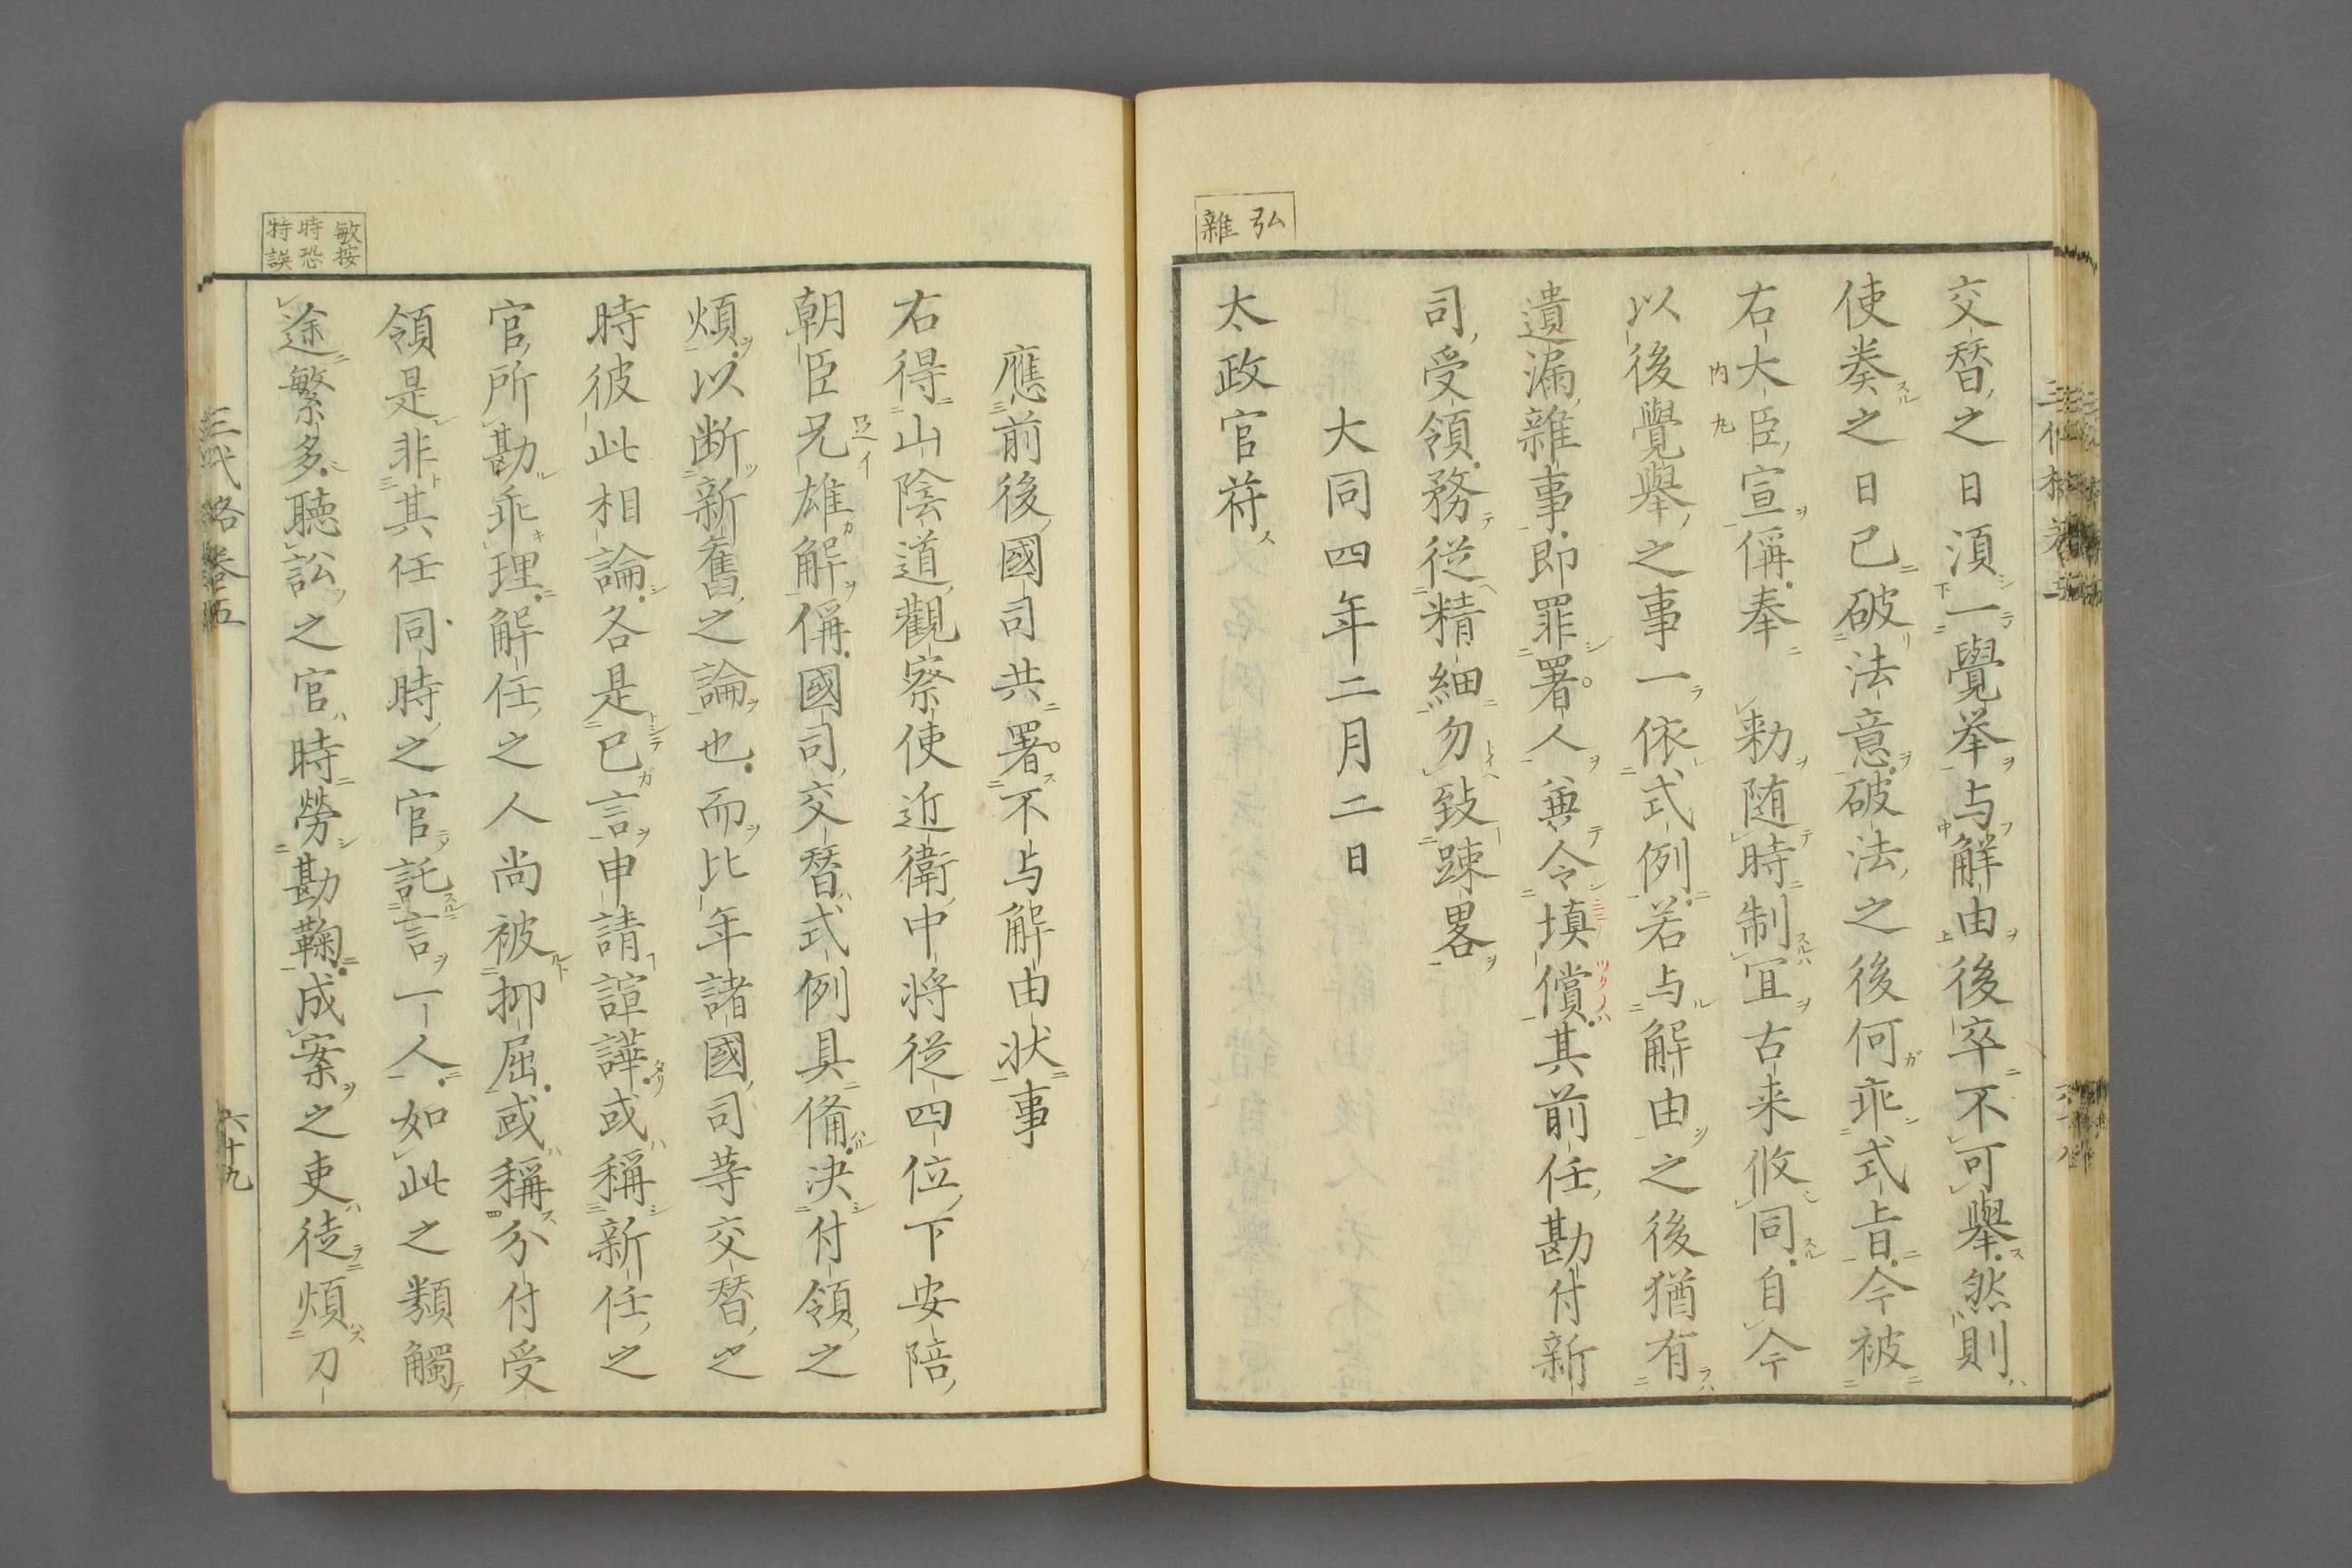 弘
雜
交替之日須一覺举与解由後卒不可擧然則
使奏之日已破法意破法之後何乖式旨今被
右大臣宣偁奉 勅随時制宜古来攸同自今
内九
以後覺擧之事一依式例若与解由之後猶有
遺漏雜事即罪署人兼令填償其前任勘付新
司受領務從精細勿致踈畧
大同四年二月二日
太政官符
應前後國司共署不与解由状事
右得山陰道觀察使近衛中将從四位下安陪
朝臣兄雄解偁國司交替式例具備決付領之
煩以断新舊之論也而比年諸國司等交替之
時彼此相論各是已言申請諠譁或稱新任之
官所勘乖理解任之人尚被抑屈或稱分付受
領是非其任同時之官託言一人如此之類觸
途繁多聴訟之官時勞勘鞠成案之吏徒煩刀
敏按
時恐
特誤
三代格 卷五
六十九